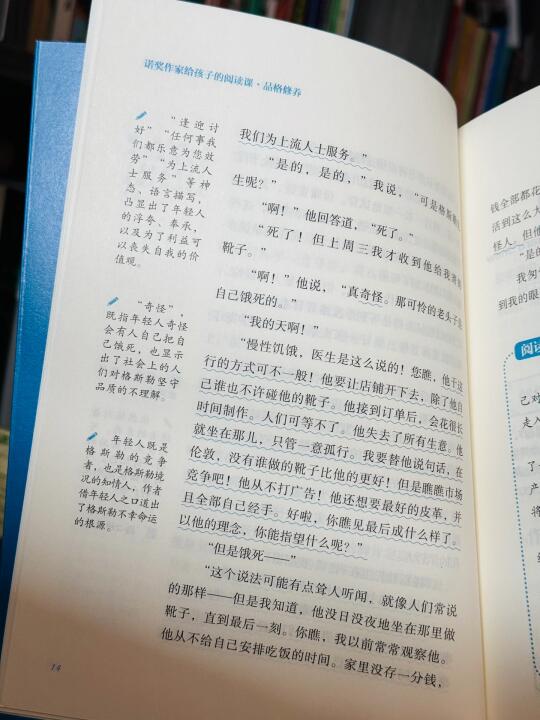 诺奖作家给孩子的阅读课·品格修养
“逢迎讨
好”“任何事我
们都乐意为您效
劳”“为上流人
士服务”等神
态、语言描写，
凸显出了年轻人
的浮夸、奉承，
以及为了利益可
以丧失自我的价
值观。
“奇怪”，
既指年轻人奇怪
会有人自己把自
己饿死，也显示
出了社会上的人
们对格斯勒坚守
品质的不理解。
年轻人既是
格斯勒的竞争
者，也是格斯勒境
况的知情人，作者
借年轻人之口道出
了格斯勒不幸命运
的根源。
我们为上流人士服务。”
“是的，是的，”我说，“可是格斯勒
生呢？”
“啊！”他回答道，“死了。”
“死了！但上周三我才收到他给我
靴子。”
“啊！”他说，“真奇怪。那可怜的老头子
自己饿死的。”
“我的天啊！”
“慢性饥饿，医生是这么说的！您瞧，他干
行的方式可不一般！他要让店铺开下去，除了他自
己谁也不许碰他的靴子。他接到订单后，会花很长
时间制作。人们可等不了。他失去了所有生意。他
就坐在那儿，只管一意孤行。我要替他说句话，在
伦敦，没有谁做的靴子比他的更好！但是瞧瞧市场
竞争吧！他从不打广告！他还想要最好的皮革，并
且全部自己经手。好啦，你瞧见最后成什么样了。
以他的理念，你能指望什么呢？”
“但是饿死——”
“这个说法可能有点耸人听闻，就像人们常说
的那样——但是我知道，他没日没夜地坐在那里做
靴子，直到最后一刻。你瞧，我以前常常观察他。
他从不给自己安排吃饭的时间。家里没存一分钱，
14
钱全部都花
活到这么大
怪人。但他
“是的
我匆
到我的眼
阅读
己对
走入
了
产
现